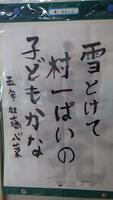 雪とけて
村一ぱいの
子どもかな
五年 加藤心菜